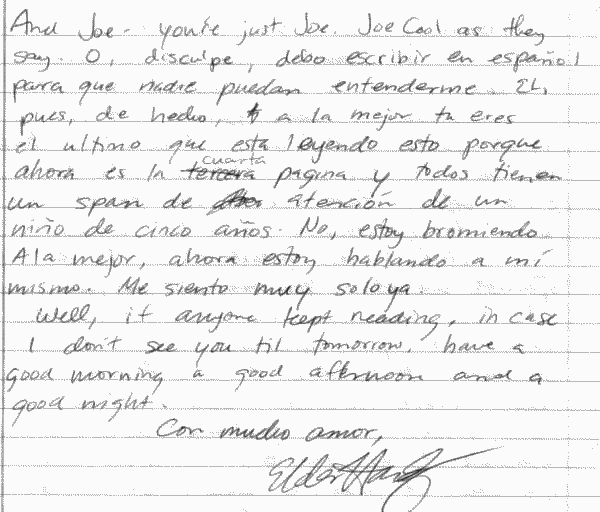 And Joe - you're just Joe. Joe Cool as they
say. O, disculpe, debo escribir en español
para que nadie puedan entenderme. El,
pues, de hecho, a la mejor tu eres
el ultimo que esta leyendo esto porque
ahora es la cuarta pagina y todos tienen
un span de atención de un
niño de cinco años. No, estoy bromiendo.
A la mejor, ahora estoy hablando a mí
mismo. Me siento muy solo ya.
Well, if anyone kept reading, in case
I don't see you til tomorrow, have a
good morning a good afternoon and a
good night.
Con mucho amor,
Elder